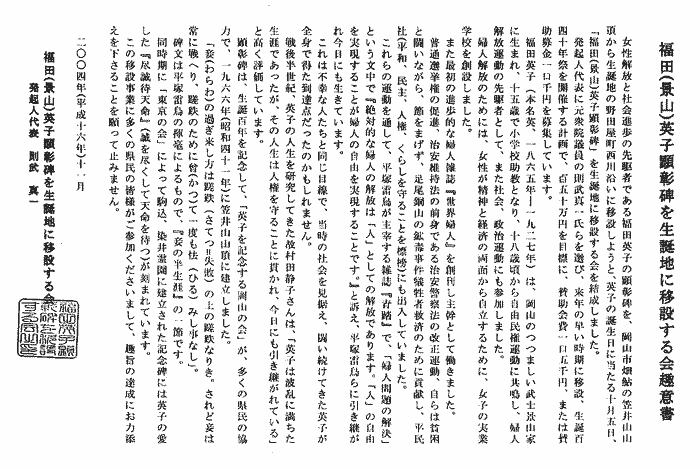 福田(景山)英子顕彰碑を生誕地に移設する会趣意書
女性解放と社会進歩の先駆者である福田英子の顕彰碑を、岡山市畑鮎の笠井山山
頂から生誕地の野田屋町西川沿いに移設しようと、英子の誕生日に当たる十月五日、
「福田(景山)英子顕彰碑」を生誕地に移設する会を結成しました。
発起人代表に元衆院議員の則武真一氏らを選び、来年の早い時期に移設、生誕百
四十年祭を開催する計画で、百五十万円を目標に、賛助会費一口五千円、または賛
助募金一口千円を募集しています。
福田英子(本名英、一八六五年―一九二七年)は、岡山のつつましい武士景山家
に生まれ、十五歳で小学校助教となり、十八歳頃から自由民権運動に共鳴し、婦人
解放運動の先駆者として、また社会、政治運動にも参加しました。
婦人解放のためには、女性が精神と経済の両面から自立するために、女子の実業
学校を創設しました。
また最初の進歩的な婦人雑誌『世界婦人』を創刊し主幹として働きました。
普通選挙権の促進、治安維持法の前身である治安警察法の改正運動、自らは貧困
と闘いながら、節をまげず、足尾銅山の鉱毒事件犠牲者救済のために貢献し、平民
社(平和、民主、人権、くらしを守ることを標榜)にも出入していました。
これらの運動を通して、平塚雷鳥が主宰する雑誌『青鞜』で、「婦人問題の解決」
という文中で『絶対的な婦人の解放は「人」としての解放であります。「人」の自由
を実現することが婦人の自由を実現することです。』と訴え、平塚雷鳥らに引き継が
れ今日にも生きています。
これは不幸な人たちと同じ目線で、当時の社会を見据え、闘い続けてきた英子が
全身で得た到達点だったのかもしれません。
戦後半世紀、英子の人生を研究してきた故村田静子さんは、「英子は波乱に満ちた
生涯であったが、その人生は人権を守ることに貫かれ、今日にも引き継がれている」
と高く評価しています。
顕彰碑は、生誕百年を記念して、「英子を記念する岡山の会」が、多くの県民の協
力で、一九六六年(昭和四十一年)に笠井山山頂に建立しました。
「妾(わらわ)の過ぎ来し方は蹉跌(さてつ=失敗)の上の蹉跌なりき。されど妾は
常に戦へり、蹉跌のために曾(かつ)て一度も怯(ひる)みし事なし」。
碑文は平塚雷鳥の揮毫によるもので、『妾の半生涯』の一節です。
同時期に「東京の会」によって駒込、染井霊園に建立された記念碑には英子の愛
した『尽誠待天命』(誠を尽くして天命を待つ)が刻まれています。
この移設事業に多くの県民の皆様がご参加くださいまして、趣旨の達成にお力添
えを下さることを願って止みません。
二〇〇四年(平成十六年)十一月
福田(景山)英子顕彰碑を生誕地に移設する会
発起人代表 則武 真一